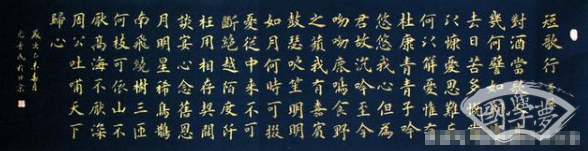 短歌行
對酒當歌
幾何譬如
去日苦多慨當
以慷憂思難忘
何以解憂惟有
杜康青青子衿
悠悠我心但為
君故沉吟至今
呦呦鹿鳴食野
之蘋我有嘉賓
鼓瑟吹笙明明
如月何時可掇
憂從中來不可
斷絕越陌度阡
枉用相存契闊
談宴心念舊恩
月明星稀烏鵲
南飛繞樹三匝
何枝可依山不
厭高海不厭深
周公吐哺天下
歸心
國學夢